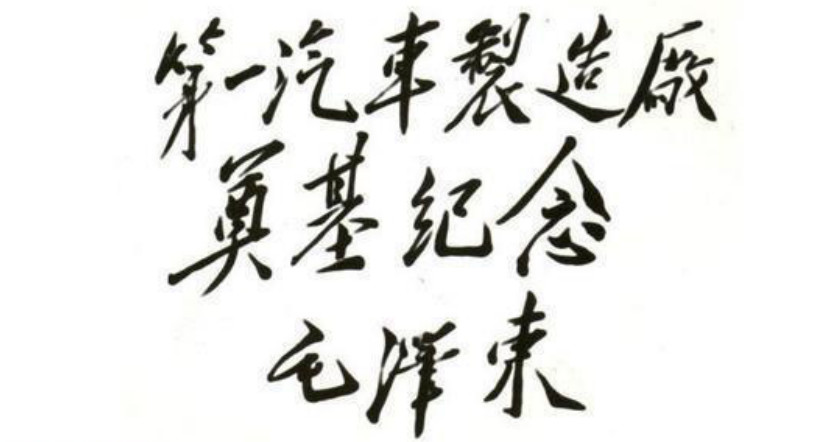 第一汽車製造廠
奠基紀念
毛澤東